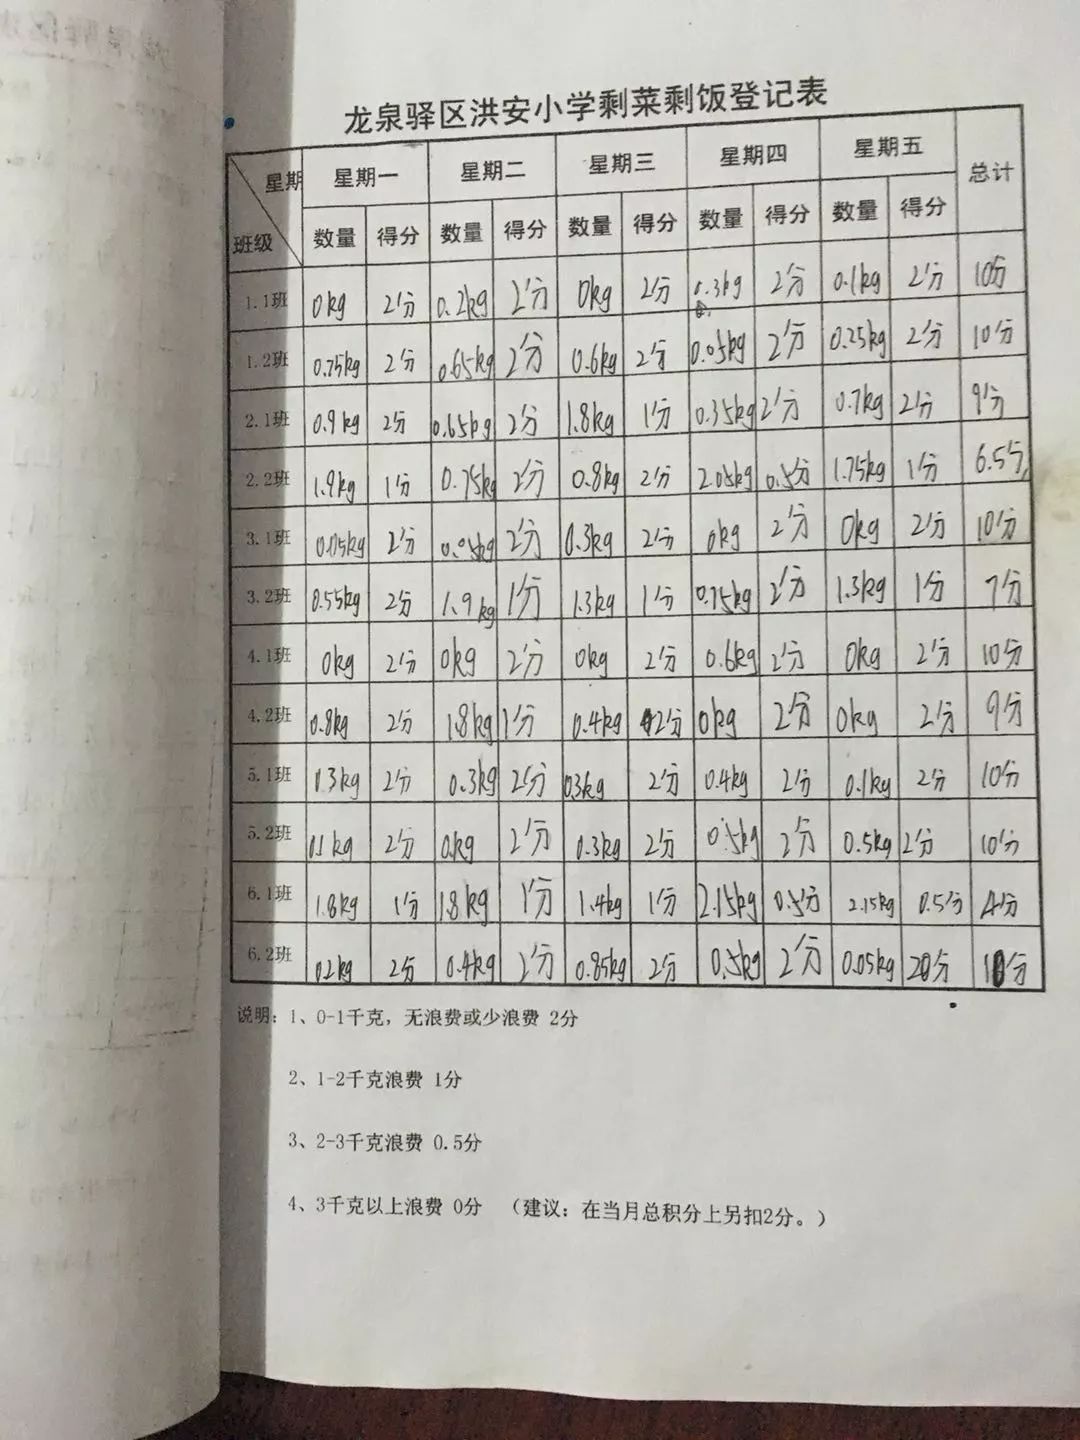 龙泉驿区洪安小学剩菜剩饭登记表
星期 星期一 星期二 星期三 星期四 星期五 总计
班级 数量 得分 数量 得分 数量 得分 数量 得分 数量 得分
1.1班 0kg 2分 0.2kg 2分 0kg 2分 0.3kg 2分 0.1kg 2分 10分
1.2班 0.75kg 2分 0.65kg 2分 0.6kg 2分 0.05kg 2分 0.25kg 2分 10分
2.1班 0.9kg 2分 0.65kg 2分 1.8kg 1分 0.35kg 2分 0.7kg 2分 9分
2.2班 1.9kg 1分 0.75kg 2分 0.8kg 2分 2.05kg 0.5分 1.75kg 1分 6.5分
3.1班 0.05kg 2分 0.05kg 2分 0.3kg 2分 0kg 2分 0kg 2分 10分
3.2班 0.55kg 2分 1.9kg 1分 1.3kg 1分 0.75kg 2分 1.3kg 1分 7分
4.1班 0kg 2分 0kg 2分 0kg 2分 0.6kg 2分 0kg 2分 10分
4.2班 0.8kg 2分 1.8kg 1分 0.4kg 2分 0kg 2分 0kg 2分 9分
5.1班 0.3kg 2分 0.3kg 2分 0.3kg 2分 0.4kg 2分 0.1kg 2分 10分
5.2班 0.1kg 2分 2分 0.3kg 2分 0.5kg 2分 0.5kg 2分 10分
6.1班 1.8kg 1分 1.8kg 1分 1.4kg 1分 2.15kg 0.5分 2.15kg 0.5分 4分
6.2班 0.2kg 2分 0.4kg 2分 0.85kg 2分 0.5kg 2分 0.05kg 2分 10分
说明：1、0-1千克，无浪费或少浪费 2分
2、1-2千克浪费 1分
3、2-3千克浪费 0.5分
4、3千克以上浪费 0分 （建议：在当月总积分上另扣2分。）